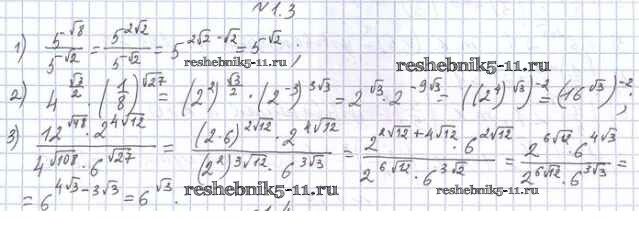 №1.3
1) 5^√8 / 5^√2 = 5^(2√2) / 5^√2 = 5^(2√2 - √2) = 5^√2 ;
reshebnik5-11.ru reshebnik5-11.ru
2) 4^(√3/2) · (1/8)^√27 = (2²)^(√3/2) · (2^-3)^(3√3) = 2^√3 · 2^(-9√3) = ((2⁴)^√3)^-2 = (16^√3)^-2 ;
3) 12^√48 · 2^(4√12) / 4^√108 · 6^√27 = (2·6)^(2√12) · 2^(4√12) / (2²)^(3√12) · 6^(3√3) = 2^(2√12 + 4√12) · 6^(2√12) / 2^(6√12) · 6^(3√2) = 2^(6√12) · 6^(4√3) / 2^(6√12) · 6^(3√3) =
reshebnik5-11.ru
= 6^(4√3 - 3√3) = 6^√3 . reshebnik5-11.ru